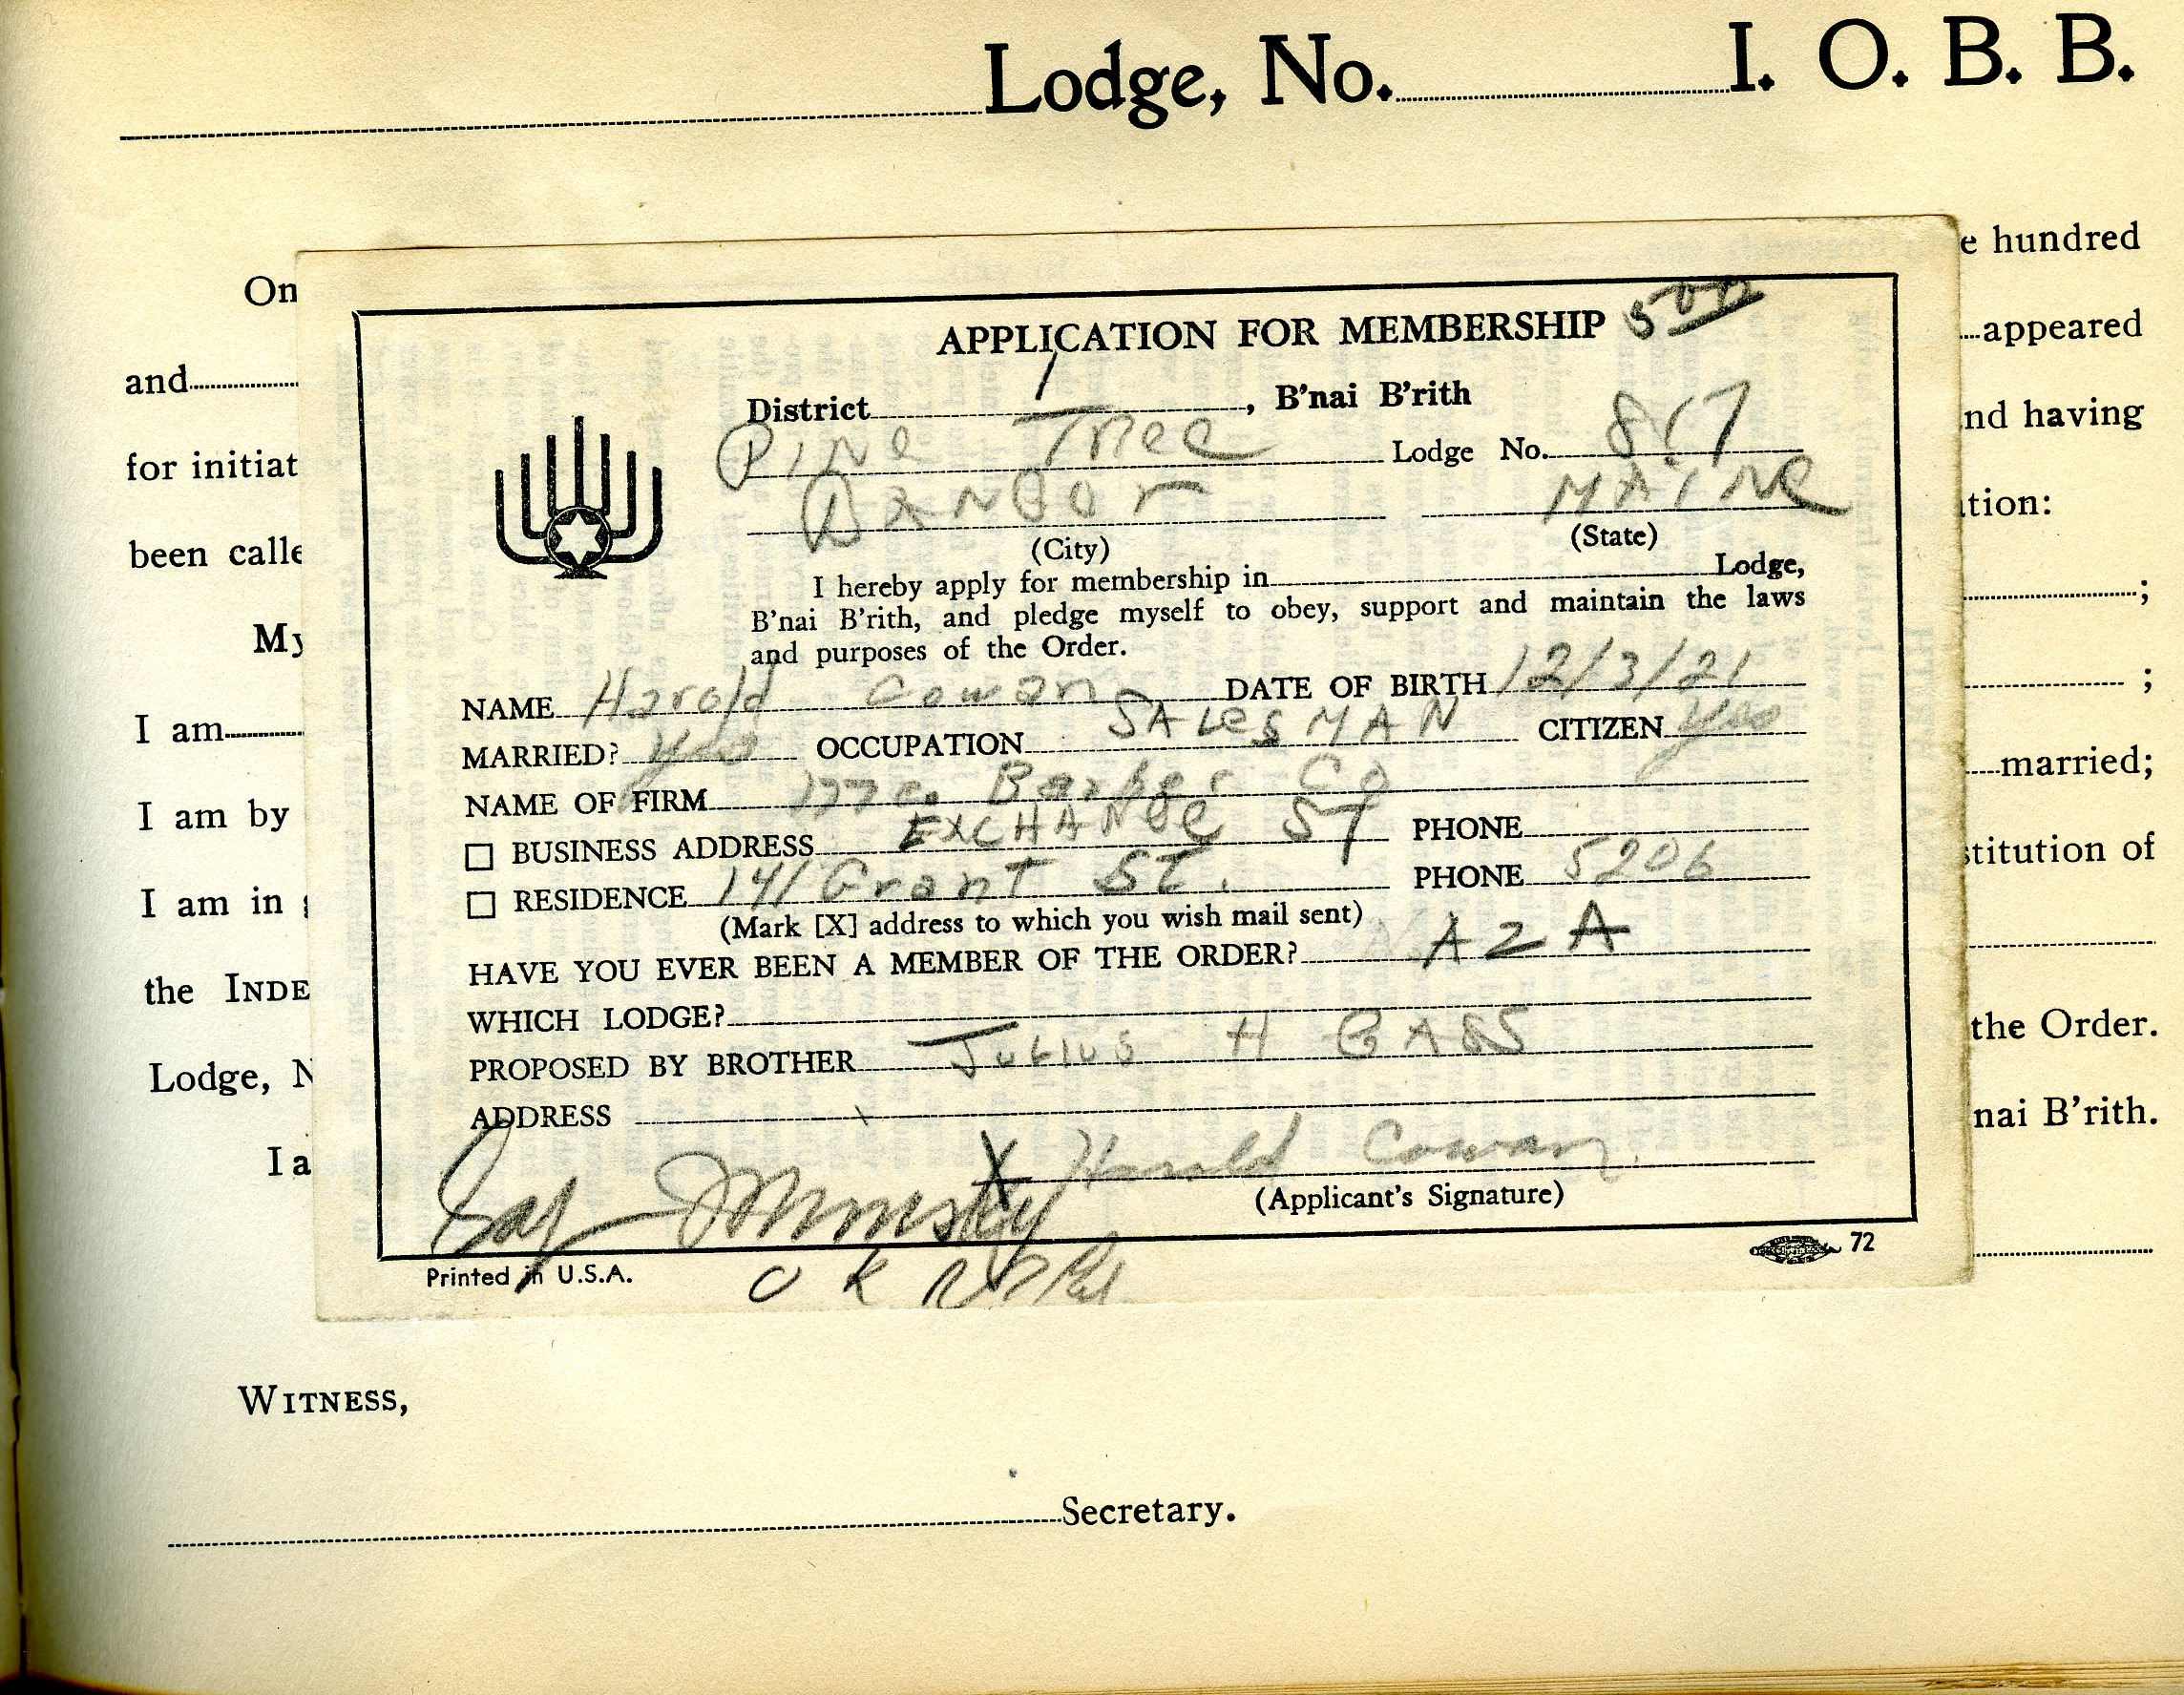 Lodge, No. I. O. B. B.
On e hundred
and appeared
for initiat nd having
been calle tion:
My ;
I am ;
I am by married;
I am in stitution of
the INDE
Lodge, N the Order.
I a nai B'rith.
APPLICATION FOR MEMBERSHIP 5 00
District 1, B'nai B'rith
Pine Tree Lodge No. 817
BANGor MAiNe
(City) (State)
I hereby apply for membership in Lodge,
B'nai B'rith, and pledge myself to obey, support and maintain the laws
and purposes of the Order.
NAME Harold Cowan DATE OF BIRTH 12/3/21
MARRIED? yes OCCUPATION SALesMAN CITIZEN yes
NAME OF FIRM Co
BUSINESS ADDRESS EXCHANGe ST PHONE
RESIDENCE 141 Grant ST. PHONE 5206
(Mark [X] address to which you wish mail sent)
HAVE YOU EVER BEEN A MEMBER OF THE ORDER? AZA
WHICH LODGE?
PROPOSED BY BROTHER Julius H
ADDRESS
X Harold Cowan
(Applicant's Signature)
O K
Printed in U.S.A. 72
WITNESS,
Secretary.